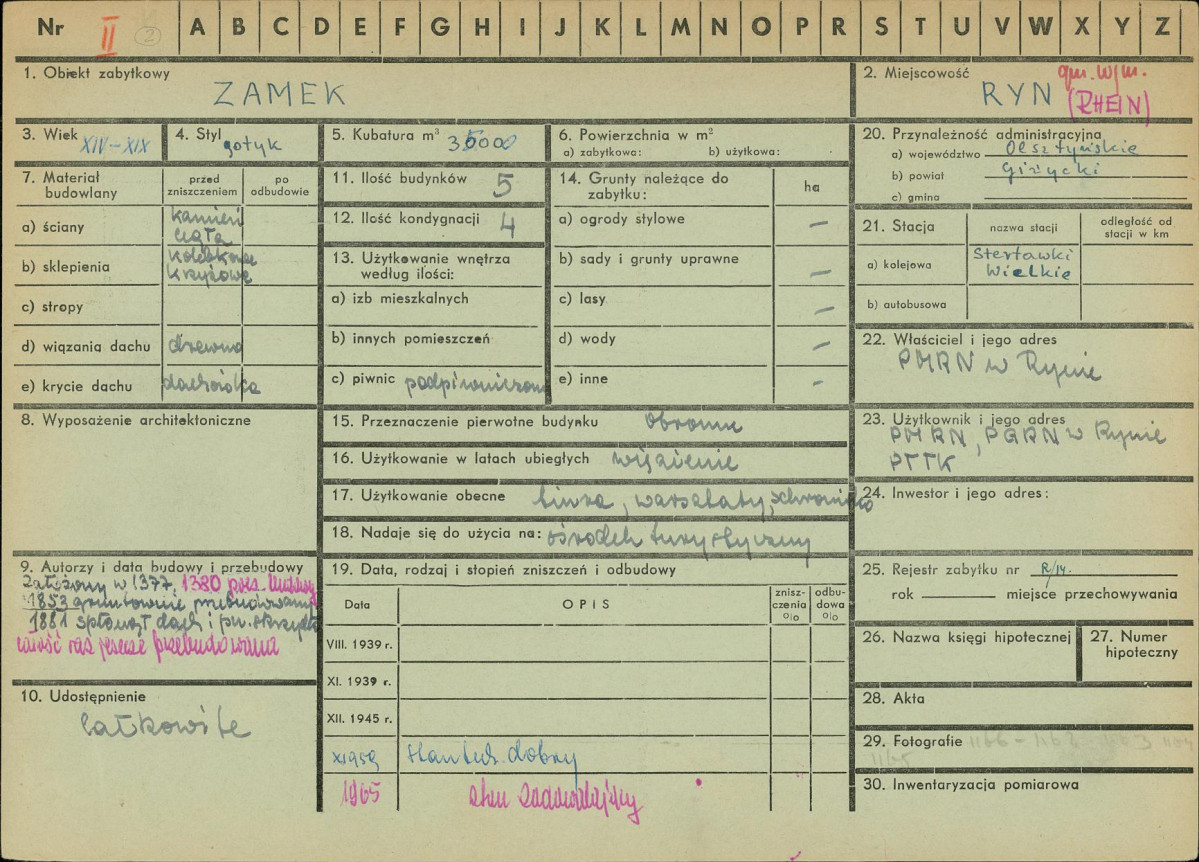 Nr II 2 A B C D E F G H I J K L M N O P R S T U V W X Y Z
1. Obiekt zabytkowy
ZAMEK
2. Miejscowość
gm. w/m.
RYN (RHEIN)
3. Wiek XIV-XIX
4. Styl gotyk
5. Kubatura m³
6. Powierzchnia w m²
a) zabytkowa: b) użytkowa:
7. Materiał budowlany
przed zniszczeniem
po odbudowie
a) ściany
kamień
cegła
b) sklepienia
kolebkowe
krzyżowe
c) stropy
d) wiązania dachu drewno
e) krycie dachu dachówka
8. Wyposażenie architektoniczne
9. Autorzy i data budowy i przebudowy
Założony w 1377, 1380
1853 gruntownie przebudowany
1881 spłonął dach i pn. skrzydło
całość raz jeszcze przebudowana
10. Udostępnienie
całkowite
11. Ilość budynków 5
12. Ilość kondygnacji 4
13. Użytkowanie wnętrza według ilości:
a) izb mieszkalnych
b) innych pomieszczeń
c) piwnic podpiwniczony
14. Grunty należące do zabytku:
ha
a) ogrody stylowe –
b) sady i grunty uprawne –
c) lasy –
d) wody –
e) inne –
15. Przeznaczenie pierwotne budynku obronne
16. Użytkowanie w latach ubiegłych więzienie
17. Użytkowanie obecne biura, warsztaty, schronisko
18. Nadaje się do użycia na: ośrodek turystyczny
19. Data, rodzaj i stopień zniszczeń i odbudowy
Data
OPIS
znisz-
czenia
o/o
odbu-
dowa
o/o
VIII. 1939 r.
XI. 1939 r.
XII. 1945 r.
XI 1959 dobry
1965 stan zadowalający
20. Przynależność administracyjna
a) województwo Olsztyńskie
b) powiat Giżycki
c) gmina
21. Stacja
nazwa stacji
odległość od stacji w km
a) kolejowa
Sterławki
Wielkie
b) autobusowa
22. Właściciel i jego adres
PMRN w Rynie
23. Użytkownik i jego adres
PMRN, PGRN w Rynie
PTTK
24. Inwestor i jego adres:
25. Rejestr zabytku nr R/14.
rok miejsce przechowywania
26. Nazwa księgi hipotecznej
27. Numer hipoteczny
28. Akta
29. Fotografie
1165
30. Inwentaryzacja pomiarowa